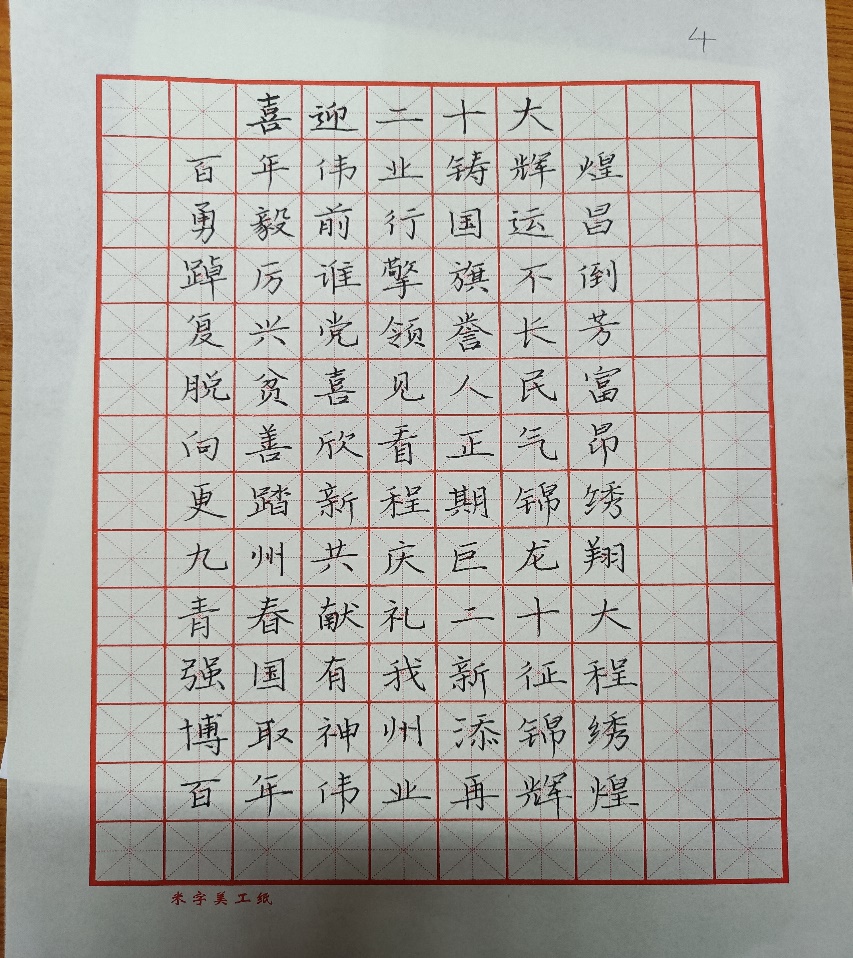 4
喜迎二十大
百年伟业铸辉煌
勇毅前行国运昌
踔厉谁擎旗不倒
复兴党领誉长芳
脱贫喜见人民富
向善欣看正气昂
更踏新程期锦绣
九州共庆巨龙翔
青春献礼二十大
强国有我新征程
博取神州添锦绣
百年伟业再辉煌
米字美工纸